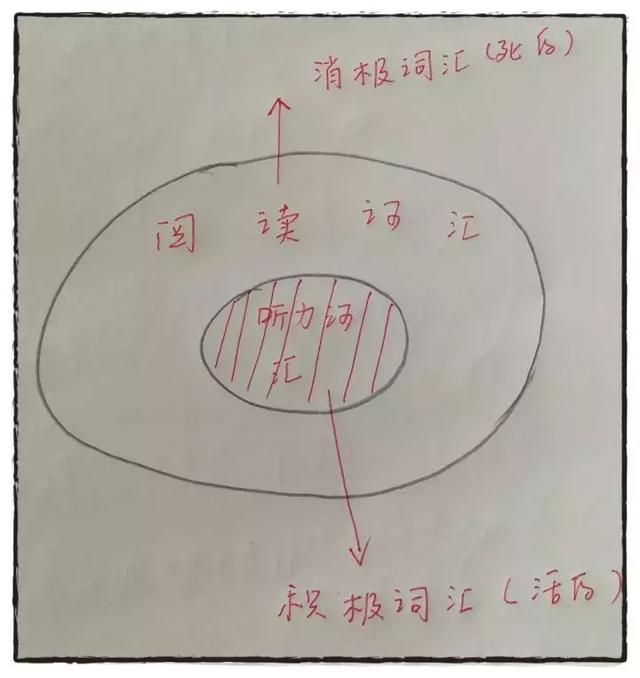 消极词汇(死的)
阅读词汇
听力词
汇
积极词汇(活的)